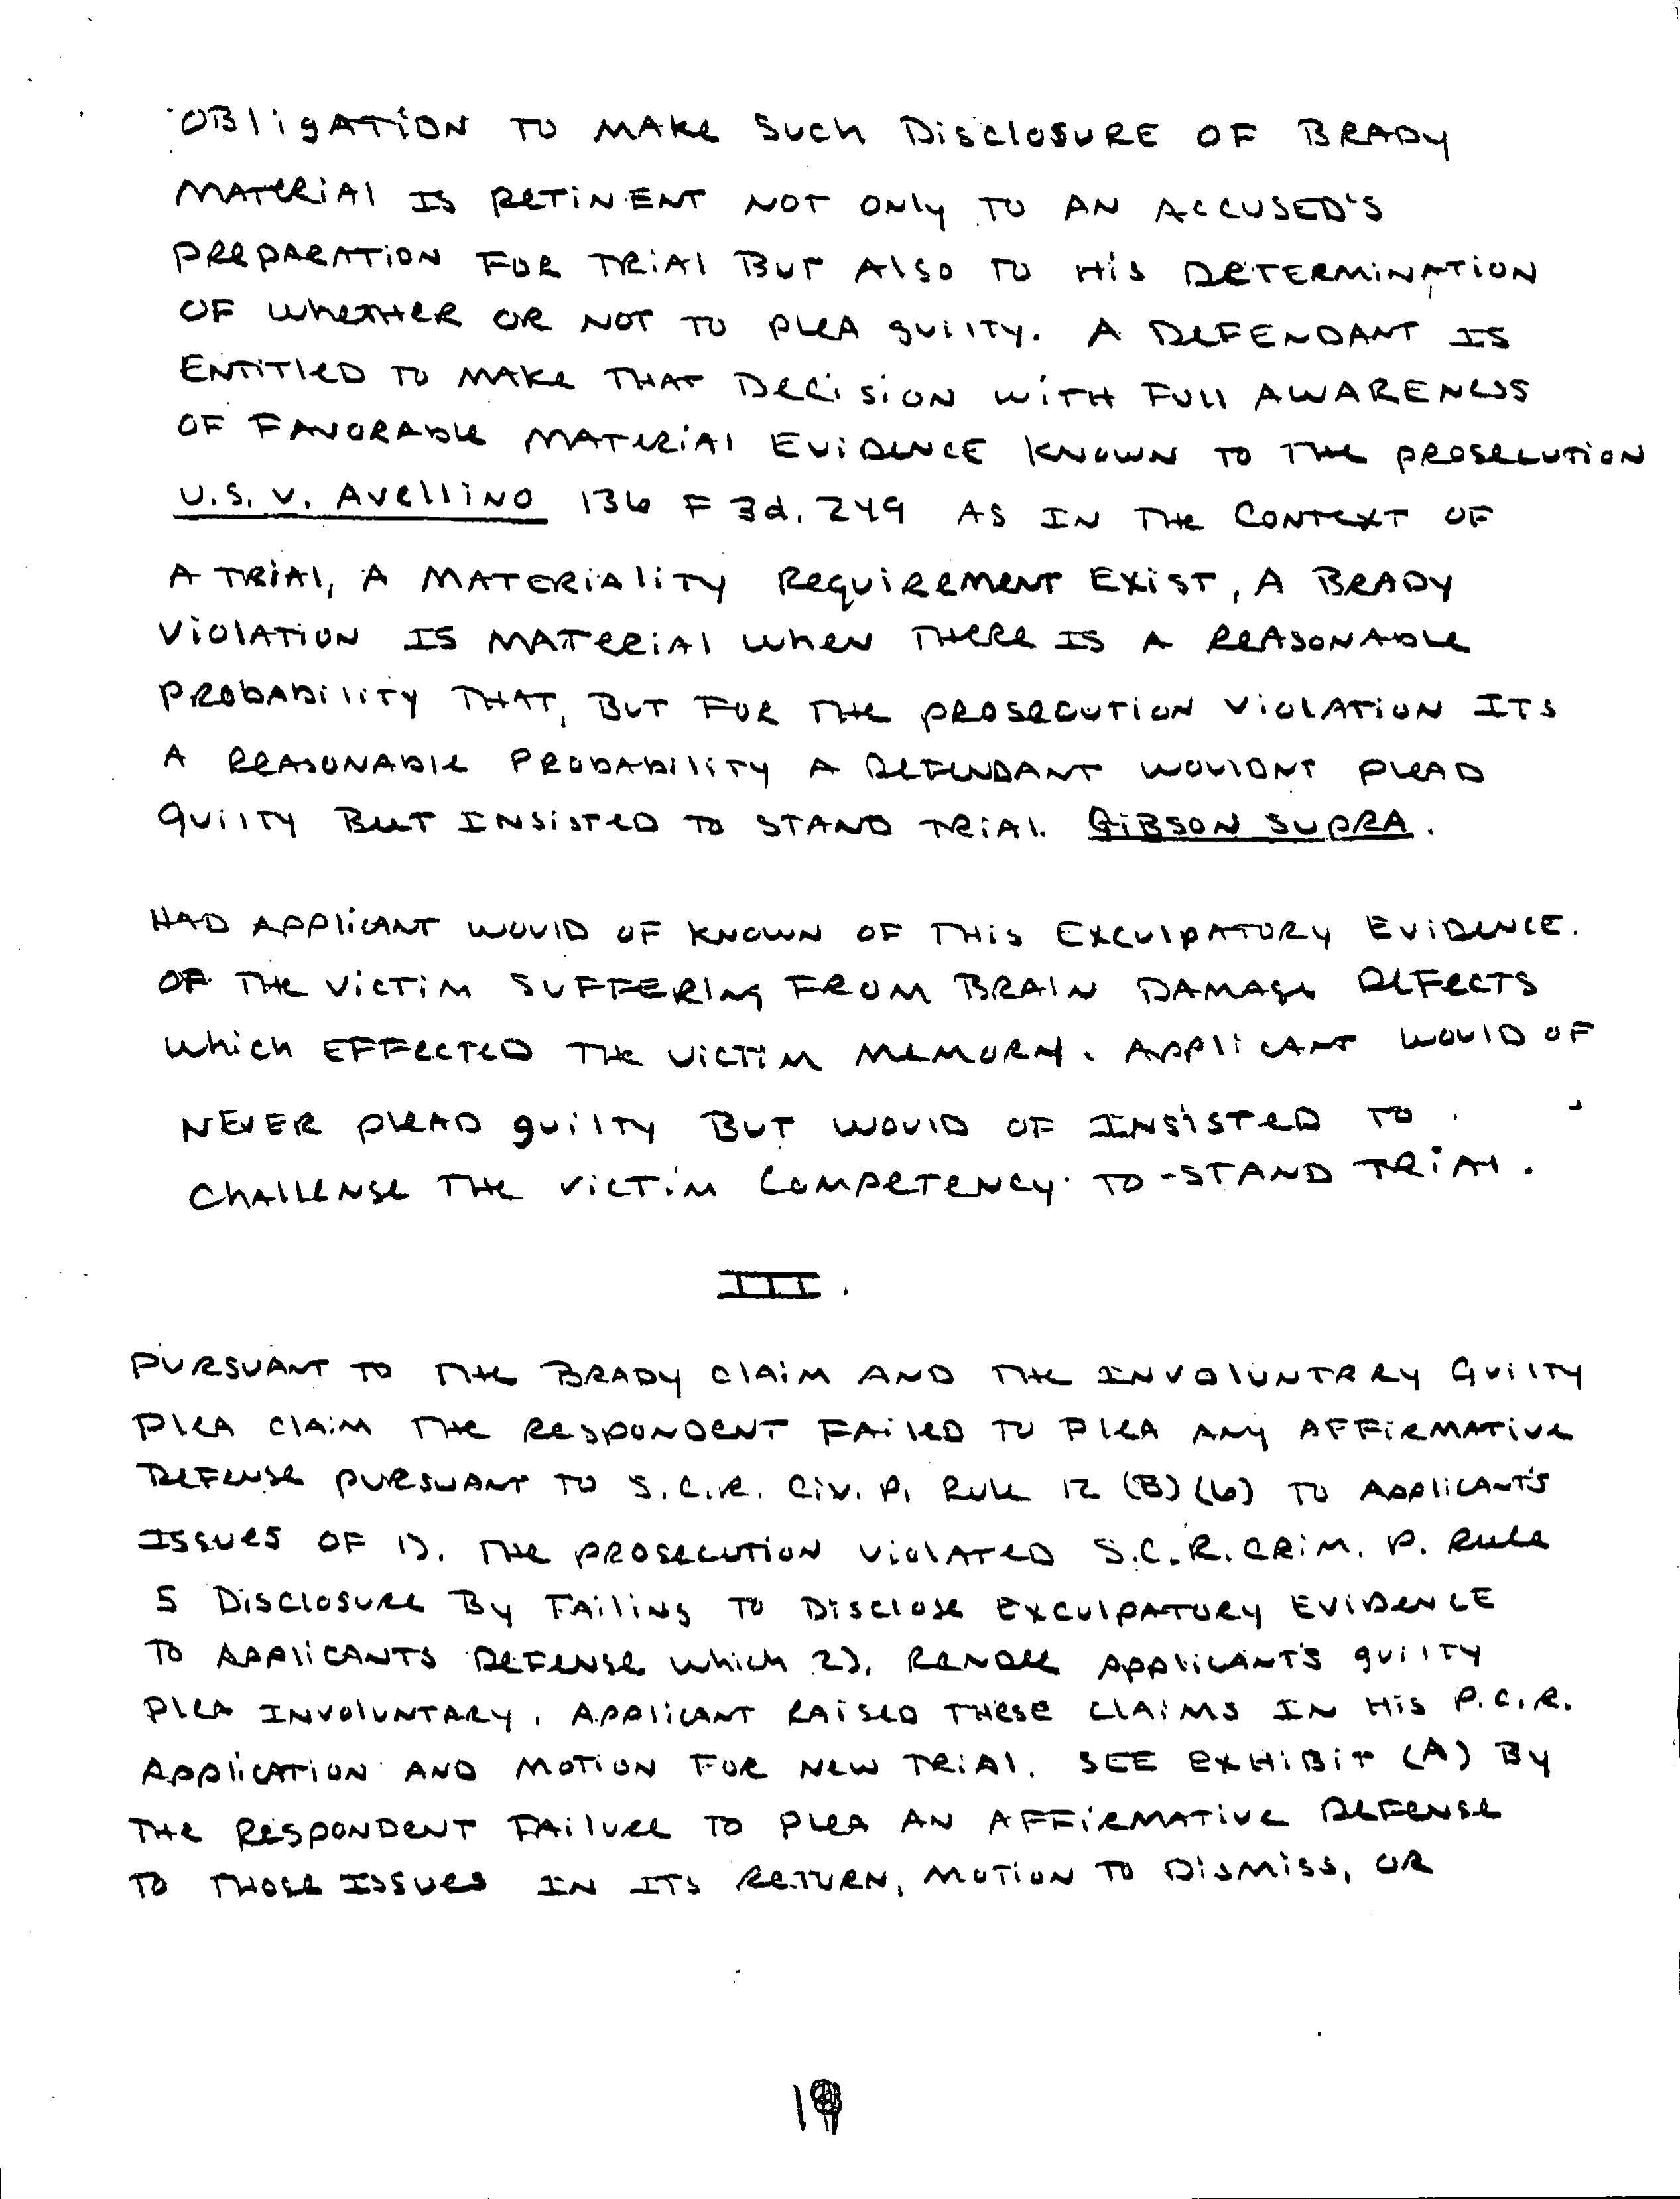 OBligATiON TO MAKe Such DisclosuRE OF BRADy
MATeRiAl IS PeTiNENT NOT ONly TO AN ACCUSED'S
PRePARATiON FOR TRiAl BUT Also TO His DETERMiNATiON
OF WheTHeR OR NOT TO PleA guilTy. A DeFENDANT IS
ENTiTleD TO MAKe THAT DeciSiON WiTH Full AWARENess
OF FAVORABle MATeRiAl EViDeNCE KNOWN TO THe PROSecuTiON
U.S. V. AVelliNO 136 F 3d. 249 AS IN THe CONTexT OF
A TRiAl, A MATERiAliTy RequiReMeNT EXiST, A BRADY
ViOlATiON IS MATeRiAl wheN THeRe IS A ReASONABle
PRObAbiliTy THAT, BUT FOR THe PROSecUTiON ViOlATiON ITS
A ReASONABle PRObAbiliTy A DeFeNDANT WOulDNT PleAD
GuilTy BUT INSiSTeD TO STAND TRiAl. GiBSON SupRA.
HAD APPliCANT WOulD OF KNOWN OF THiS ExculpATORy EViDeNCE.
OF THe VicTiM SUFFERiNg FROM BRAiN DAMAge DeFecTS
which EFFecTeD THe VicTiM MeMORy. APPliCANT WOulD OF
NEVER PleAD guilTy BUT WOulD OF INSiSTeD TO
ChAlleNge THe VicTiM COMPeTENCy TO-STAND TRiAl.
III.
PURSUANT TO THe BRADy ClAiM AND THe INVOlUNTRAy GuilTy
PleA ClAiM THe ReSPONDeNT FAileD TO PleA ANy AFFiRMATiVe
DeFeNSe PURSUANT TO S.C.R. Civ. P. Rule 12 (B)(6) TO APPliCANT'S
ISSUeS OF 1). THe PROSecuTiON ViOlATeD S.C.R.CRiM. P. Rule
5 DisclosuRe By FAiliNg TO DisclOSe EXculPATORy EViDeNCE
TO APPliCANTS DeFeNSe which 2). ReNDeR APPliCANT'S guilTy
PleA INVOlUNTARy. APPliCANT RAiSeD THeSE ClAiMS IN HiS P.C.R.
APPliCATiON AND MOTiON FOR NeW TRiAl. SEE EXHiBiT (A) By
THe ReSPONDeNT FAiluRe TO PleA AN AFFiRMATiVe DeFeNSe
TO THOSe ISSUeS IN ITS ReTURN, MOTiON TO DiSMiSS, OR